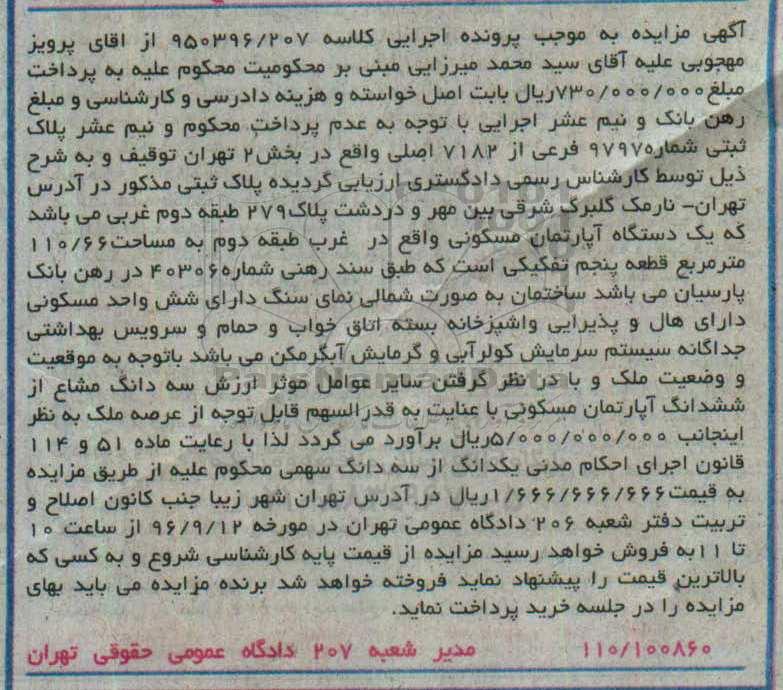 آگهی مزایده به موجب پرونده اجرایی کلاسه ۹۵۰۳۹۶/۲۰۷ از اقای پرویز
مهجوبی علیه آقای سید محمد میرزایی مبنی بر محکومیت محکوم علیه به پرداخت
مبلغ۷۳۰/۰۰۰/۰۰۰ریال بابت اصل خواسته و هزینه دادرسی و کارشناسی و مبلغ
رهن بانک و نیم عشر اجرایی با توجه به عدم پرداخت محکوم و نیم عشر پلاک
ثبتی شماره۹۷۹۷ فرعی از ۷۱۸۲ اصلی واقع در بخش۲ تهران توقیف و به شرح
ذیل توسط کارشناس رسمی دادگستری ارزیابی گردیده پلاک ثبتی مذکور در آدرس
تهران- نارمک گلبرگ شرقی بین مهر و دردشت پلاک۲۷۹ طبقه دوم غربی می باشد
که یک دستگاه آپارتمان مسکونی واقع در غرب طبقه دوم به مساحت۱۱۰/۶۶
مترمربع قطعه پنجم تفکیکی است که طبق سند رهنی شماره۴۰۳۰۶ در رهن بانک
پارسیان می باشد ساختمان به صورت شمالی نمای سنگ دارای شش واحد مسکونی
دارای هال و پذیرایی واشپزخانه بسته اتاق خواب و حمام و سرویس بهداشتی
جداگانه سیستم سرمایش کولرآبی و گرمایش آبگرمکن می باشد باتوجه به موقعیت
و وضعیت ملک و با در نظر گرفتن سایر عوامل موثر ارزش سه دانگ مشاع از
ششدانگ آپارتمان مسکونی با عنایت به قدرالسهم قابل توجه از عرصه ملک به نظر
اینجانب ۵/۰۰۰/۰۰۰/۰۰۰ریال برآورد می گردد لذا با رعایت ماده ۵۱ و ۱۱۴
قانون اجرای احکام مدنی یکدانگ از سه دانگ سهمی محکوم علیه از طریق مزایده
به قیمت۱/۶۶۶/۶۶۶/۶۶۶ریال در آدرس تهران شهر زیبا جنب کانون اصلاح و
تربیت دفتر شعبه ۲۰۶ دادگاه عمومی تهران در مورخه ۹۶/۹/۱۲ از ساعت ۱۰
تا ۱۱به فروش خواهد رسید مزایده از قیمت پایه کارشناسی شروع و به کسی که
بالاترین قیمت را پیشنهاد نماید فروخته خواهد شد برنده مزایده می باید بهای
مزایده را در جلسه خرید پرداخت نماید.
۱۱۰/۱۰۰۸۶۰ مدیر شعبه ۲۰۷ دادگاه عمومی حقوقی تهران